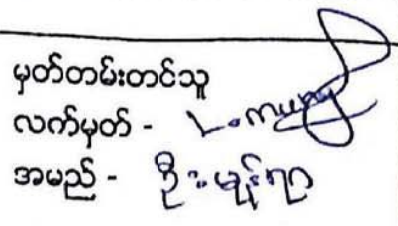 မှတ်တမ်းတင်သူ
လက်မှတ် -
အမည် - ဦးမွန်ရာ